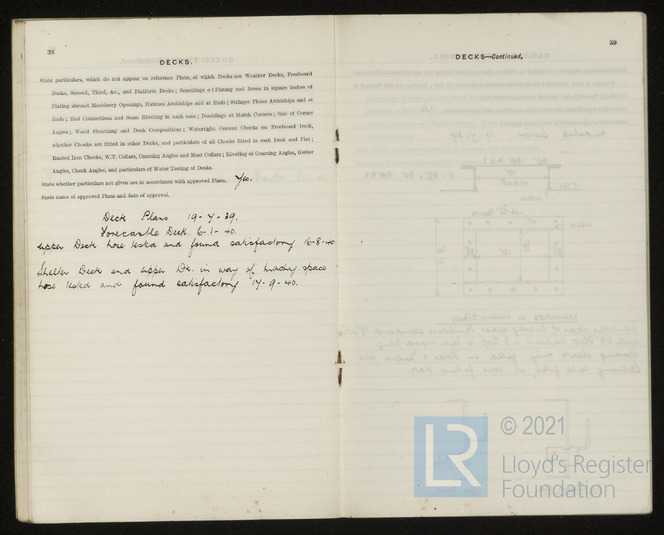 38
DECKS.
State particulars, which do not appear on reference Plans, of which Decks are Weather Decks, Freeboard
Decks, Second, Third, &c., and Platform Decks; Scantlings of Plating and Areas in square inches of
Plating abreast Machinery Openings, Hatches Amidships and at Ends; Stringer Plates Amidships and at
Ends; End Connections and Seam Riveting in each case; Doublings at Hatch Corners; Size of Corner
Angles; Wood Sheathing and Deck Compositions; Watertight Cement Chocks on Freeboard Deck,
whether Chocks are fitted in other Decks, and particulars of all Chocks fitted in each Deck and Flat;
Rusted Iron Chocks, W.T. Collars, Coaming Angles and Mast Collars; Riveting of Coaming Angles, Gutter
Angles, Chock Angles, and particulars of Water Testing of Decks.
State whether particulars not given are in accordance with approved Plans. Yes.
State name of approved Plans and date of approval.
Deck Plans 19-7-39.
Forecastle Deck. 6-1-40.
Upper Deck hose tested and found satisfactory 16-8-40
Shelter Deck and upper Dk. in way of machy. space
hose tested and found satisfactory 17-9-40.
39
DECKS—Continued.
LR
© 2021
Lloyd's Register
Foundation